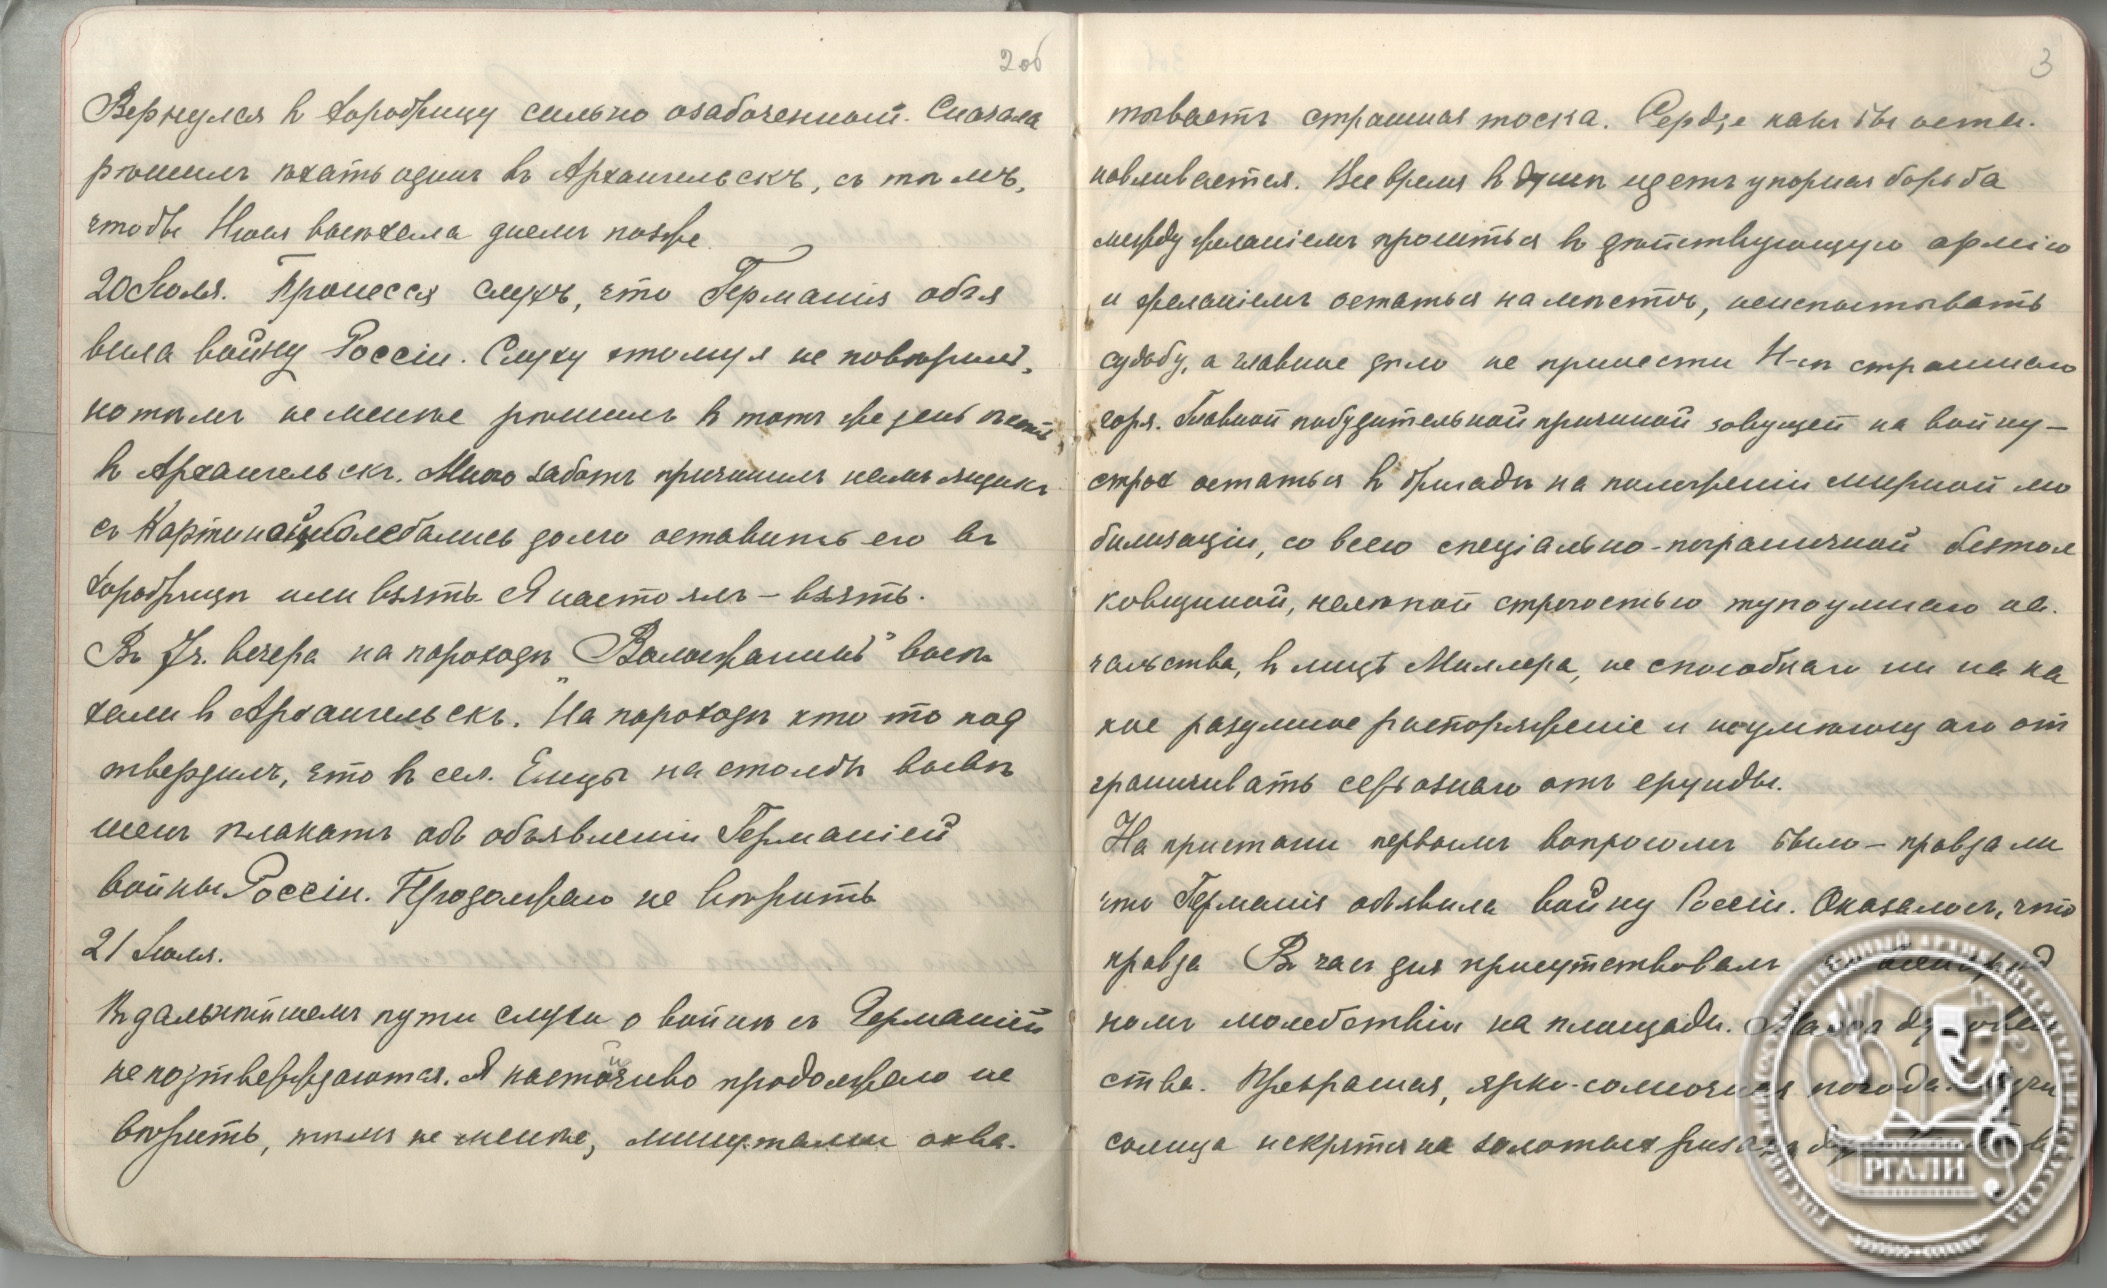 2об
Вернулся в Хоробрицу сильно озабоченный. Сначала
рѣшилъ ѣхать одинъ въ Архангельскъ, съ тѣмъ,
чтобы Нюся выѣхала днемъ позже.
20 Июля. Пронесся слухъ, что Германія объя
вила войну Россіи. Слуху этому я не повѣрилъ,
но тѣмъ не менѣе рѣшилъ в тотъ же день ѣхать
в Архангельскъ. Много заботъ причинилъ намъ ящикъ
съ картиной колебались долго оставить его въ
Хоробрицѣ или взять. Я настоялъ – взять.
Въ 7 ч. вечера на пароходѣ „Вологжанинъ" выѣ
хали в Архангельскъ. На пароходѣ кто то под
твердилъ, что в сел. Емцы на столбѣ вывѣ
шенъ плакатъ объ объявленіи Германіей
войны Россіи. Продолжаю не вѣрить
21 Июля.
Въ дальнѣйшемъ пути слухи о войнѣ съ Германіей
не подтверждаются. Я настойчиво продолжаю не
вѣрить, тѣмъ не менѣе, минутами охва-
3
тываетъ страшная тоска. Сердце какъ бы оста-
навливается. Все время в душѣ идетъ упорная борьба
между желаніемъ проситься в дѣйствующую армію
и желаніемъ остаться на мѣстѣ, неиспытывать
судьбу, а главное дѣло не принести Н-ѣ страшнаго
горя. Главной побудительной причиной зовущей на войну –
страх остаться в бригадѣ на положеніи мирной мо
билизаціи, со всею спеціально-пограничной бестол
ковщиной, нелѣпой строгостью тупоумнаго на-
чальства, в лицѣ Миллера, не способнаго ни на ка
кое разумное распоряженіе и неумѣющаго от
граничивать серьознаго отъ ерунды.
На пристани первымъ вопросомъ было – правда ли
что Германія объявила войну Россіи. Оказалось, что
правда В час дня присутствовалъ на всенарод
номъ молебствіи на площади. Масса духовен
ства. Прекрасная, ярко-солнечная погода. Лучи
солнца искрятся на золотых ризах
РГАЛИ